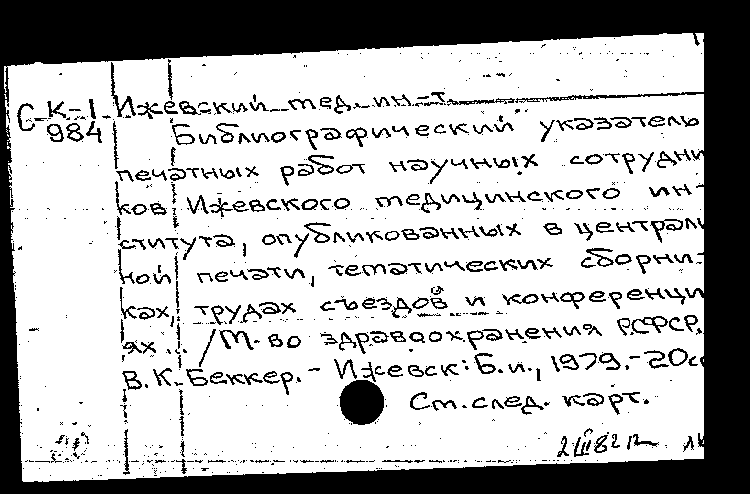 С К-1 Ижевский мед. ин-т.
984 Библиографический указатель
печатных работ научных сотрудни
ков Ижевского медицинского ин-
ститута, опубликованных в централь
ной печати, тематических сборни-
ках, трудах съездов и конференци
ях ... / М-во здравоохранения РСФСР,
В. К. Беккер. - Ижевск: Б.и., 1979. - 20
См. след. карт.
20
2 III 82